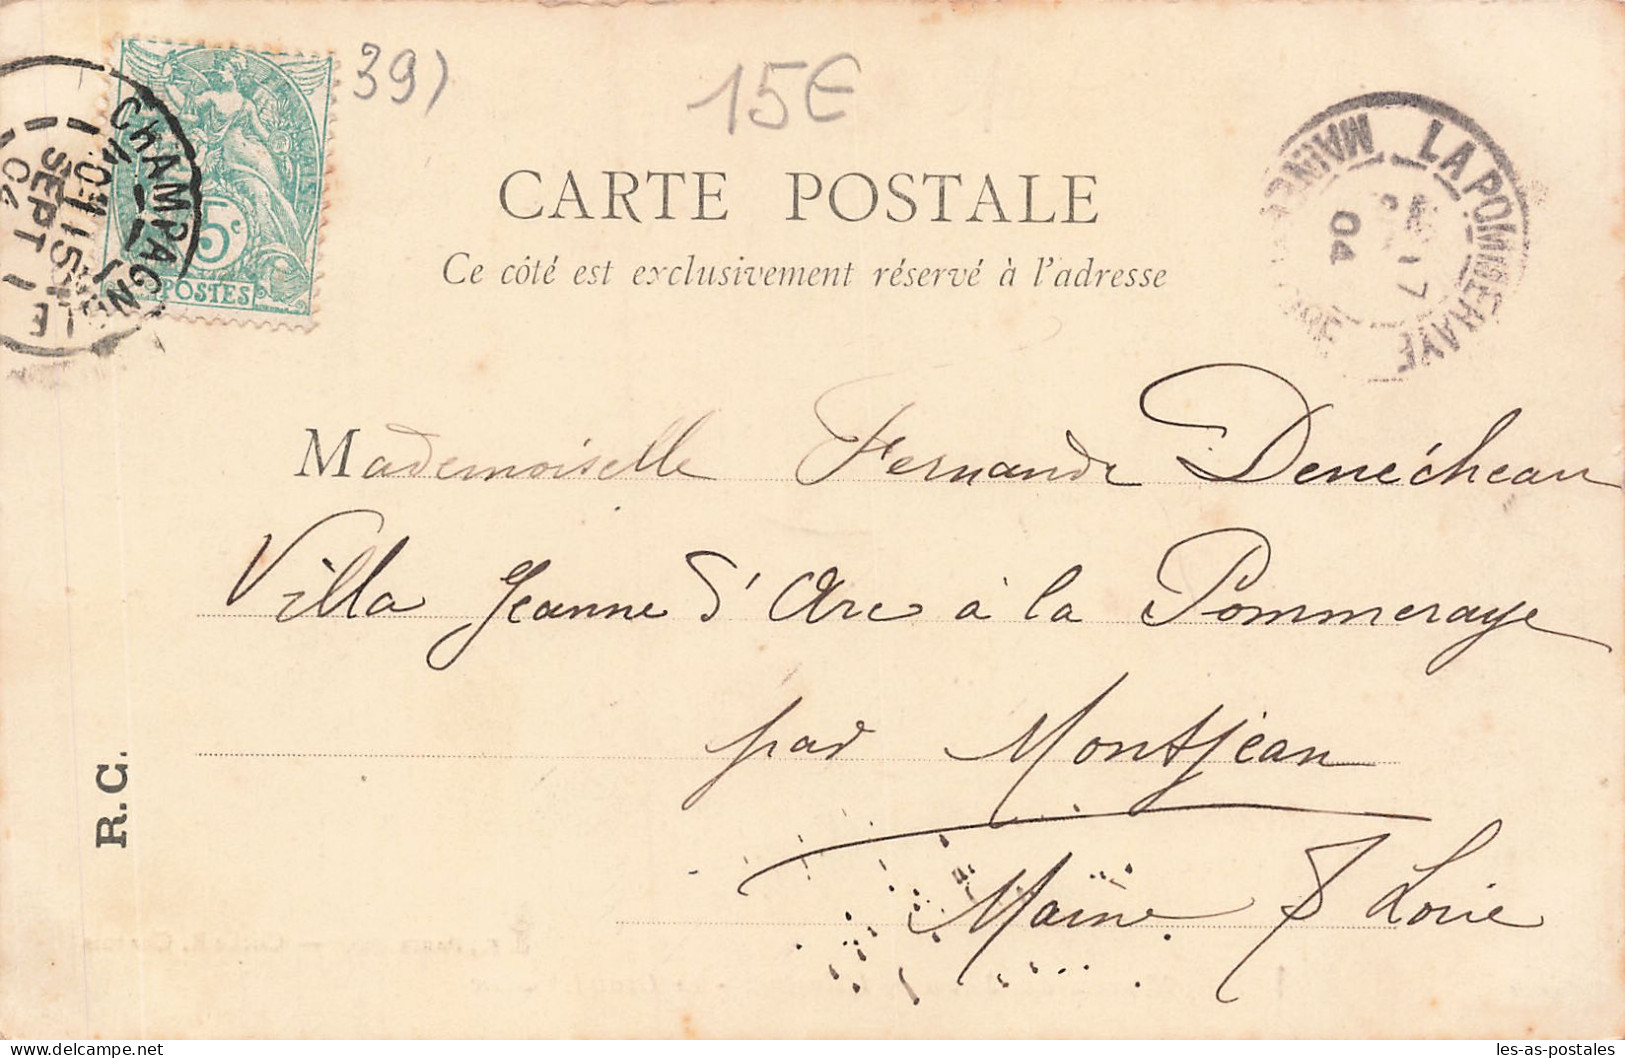 39)
15€
CHAMPAGNOLE
SEPT
04
5c
POSTES
CARTE POSTALE
Ce côté est exclusivement réservé à l'adresse
LA POMMERAYE
04
Mademoiselle Fernande Denécheau
Villa Jeanne d'Arc à la Pommeraye
par Montjean
Maine & Loire
R.C.
les-as-postales
delcampe.net